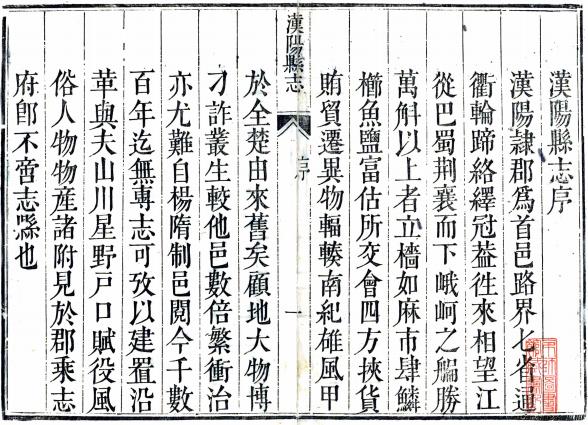 漢陽縣志序
漢陽隸郡爲首邑路界七省通
衢輪蹄絡繹冠葢徃來相望江
從巴蜀荆襄而下峨岢之艑勝
萬斛以上者立檣如麻市肆鱗
櫛魚鹽富估所交會四方挾貨
賄貿遷異物輻輳南紀雄風甲
漢陽縣志
序
一
於全楚由來舊矣顧地大物博
刁詐叢生較他邑數倍繁衝治
亦尤難自楊隋制邑閱今千數
百年迄無專志可攷以建置沿
革與夫山川星野戶口賦役風
俗人物物産諸附見於郡乘志
府卽不啻志縣也